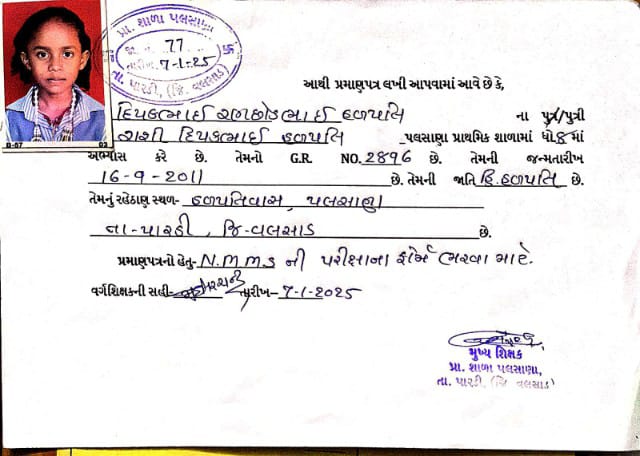 પ્રા. શાળા પલસાણા
જા. નં. 77
તારીખ 7-1-25
તા. પારડી, (જિ. વલસાડ)
D-57 03
આથી પ્રમાણપત્ર લખી આપવામાં આવે છે કે,
દિપકભાઈ રણછોડભાઈ હળપતિ ના પુત્ર/પુત્રી
રાશી દિપકભાઈ હળપતિ પલસાણા પ્રાથમિક શાળામાં ધો 8 માં
અભ્યાસ કરે છે. તેમનો G.R. NO. 2896 છે. તેમની જન્મતારીખ
16-9-2011 છે. તેમની જાતિ હિ.હળપતિ છે.
તેમનું રહેઠાણ સ્થળ- હળપતિવાસ, પલસાણા
તા-પારડી, જિ-વલસાડ છે.
પ્રમાણપત્રનો હેતુ- N.M.M.S ની પરીક્ષાના ફોર્મ ભરવા માટે.
વર્ગશિક્ષકની સહી- તારીખ- 7-1-2025
મુખ્ય શિક્ષક
પ્રા. શાળા પલસાણા,
તા. પારડી, (જિ વલસાડ)